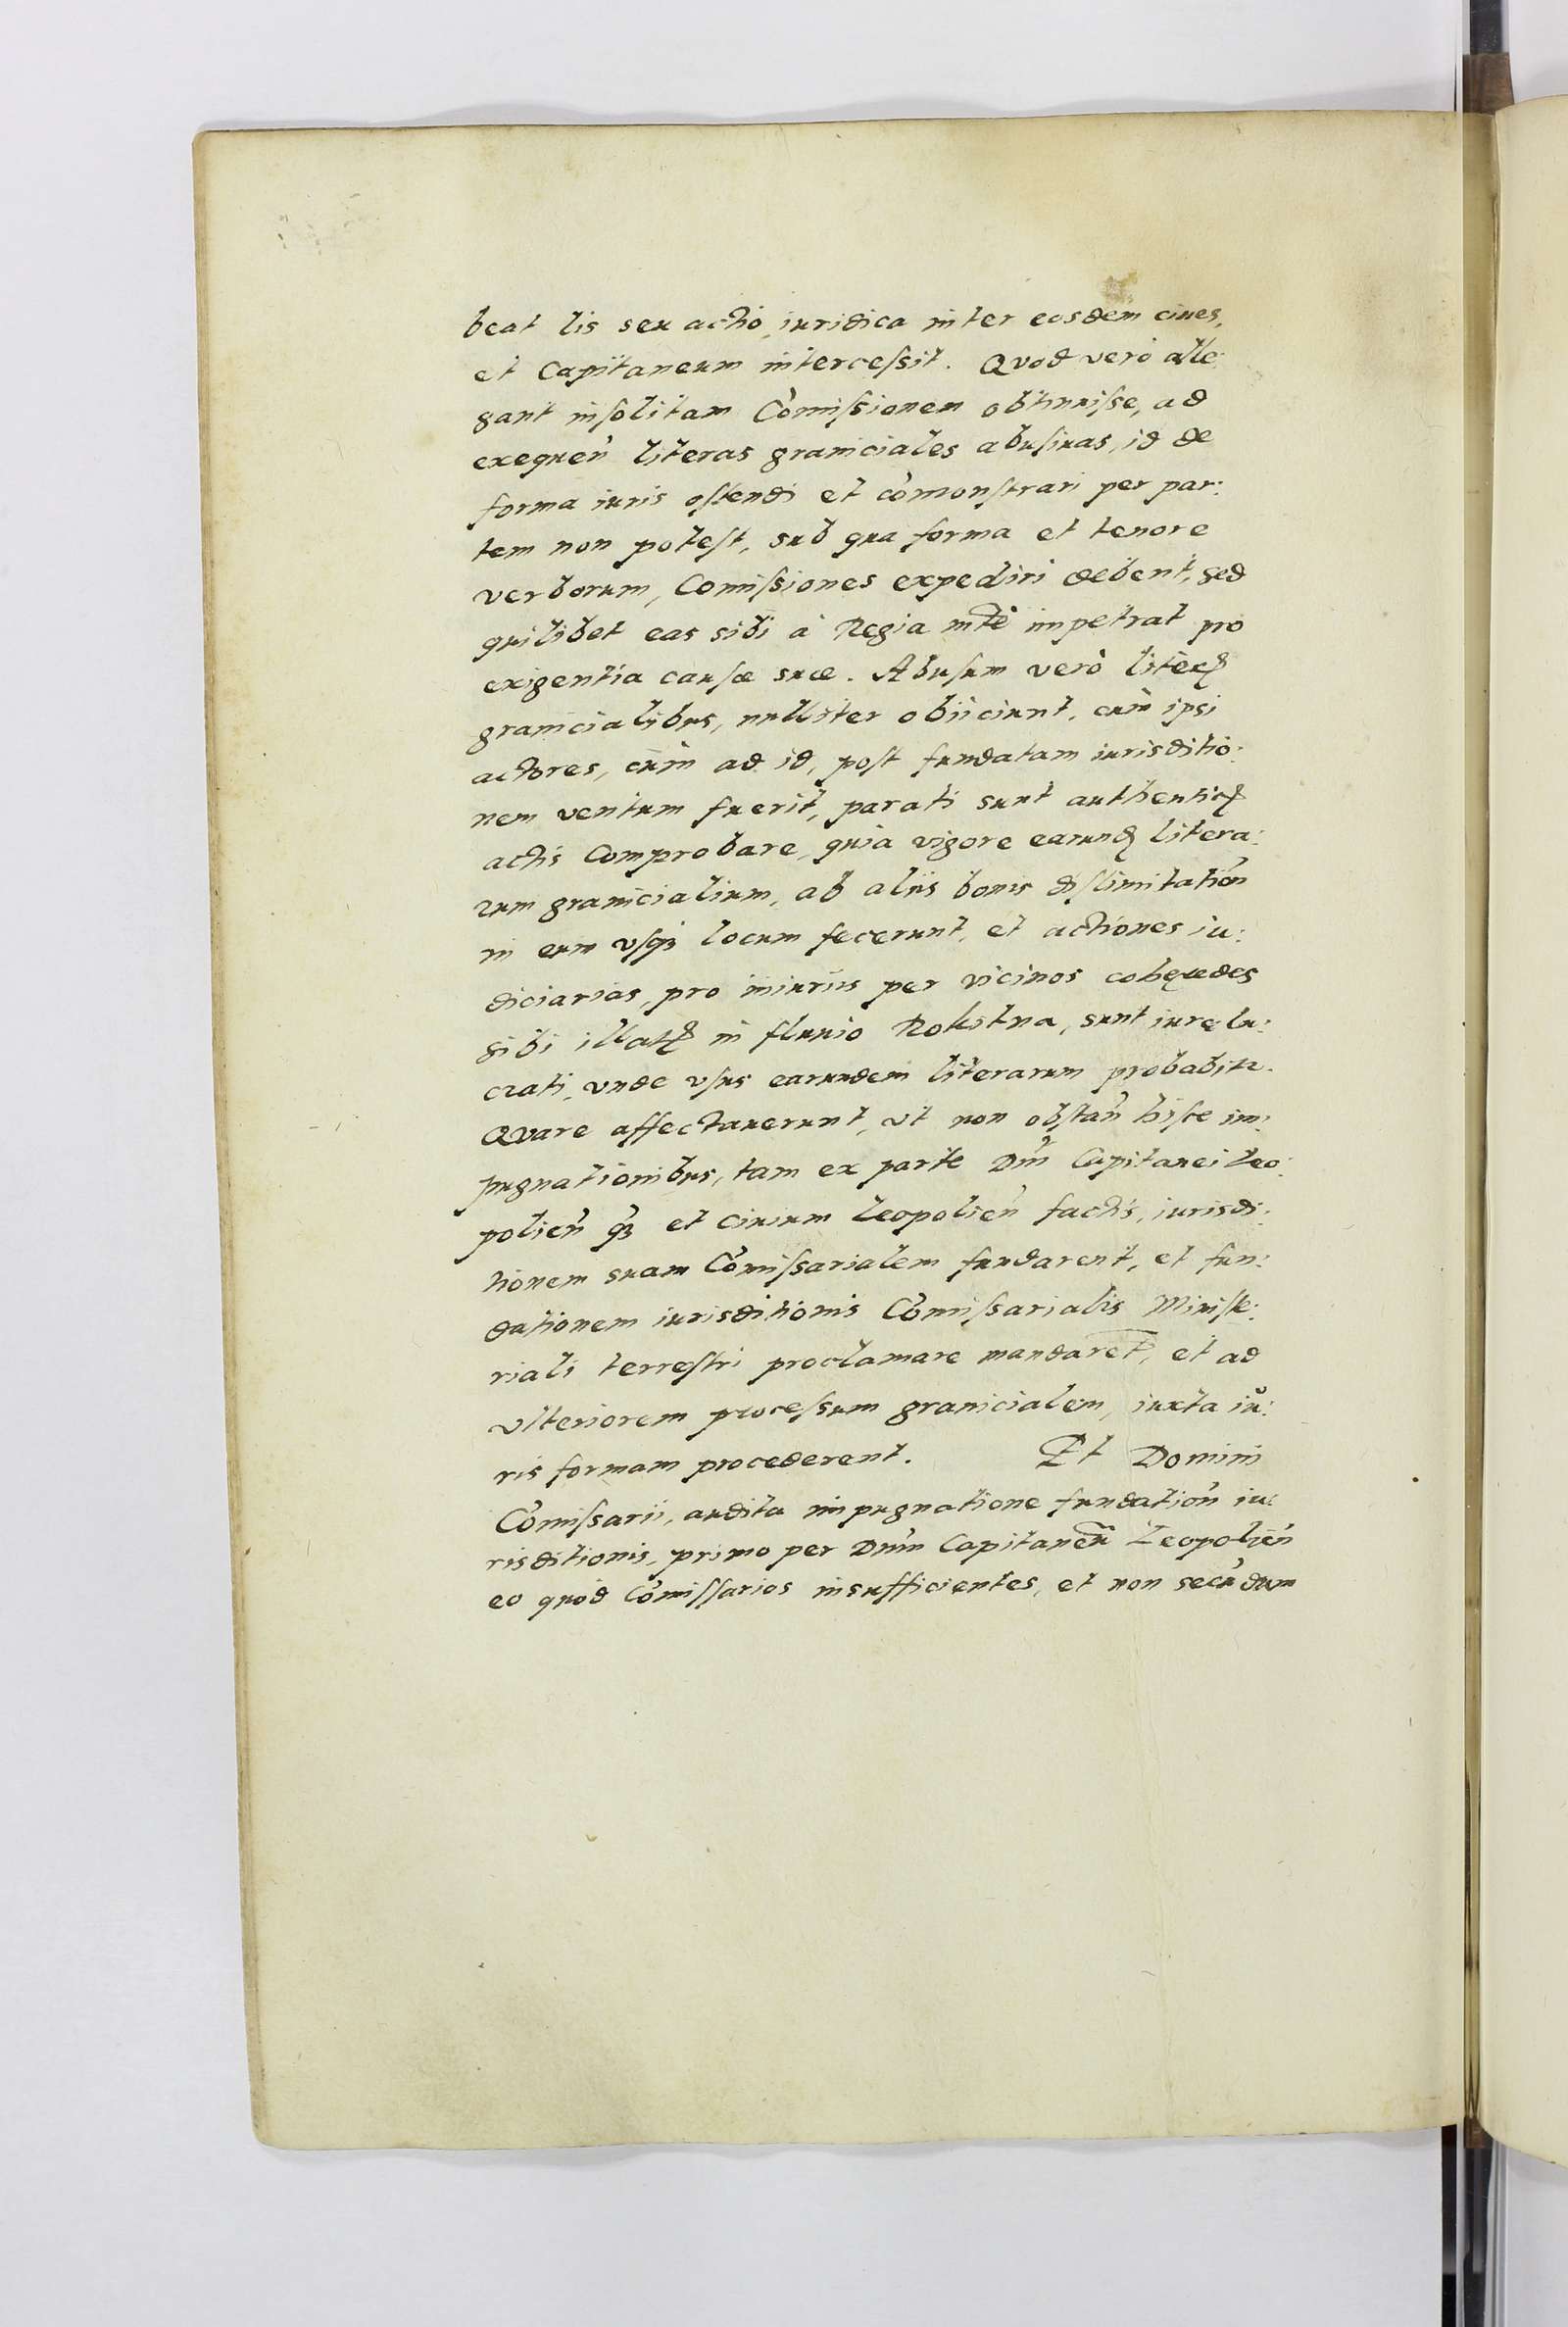 beat lis seu actio iuridica inter eosdem ciues,
et Capitaneum intercessit. Quod verò alle:
gant insolitam Cōmissionem obtinuisse, ad
exequēn literas graniciales abusiuas, id de
forma iuris ostendi et cōmonstrari per par:
tem non potest, sub qua forma et tenore
verborum, Comissiones expediri debent, sed
quilibet eas sibi à Regia mtē impetrat pro
exigentia causæ suæ. Abusum verò literꝫ
granicialibus, nulliter obiiciunt, cum ipsi
actores, cùm ad id, post fundatam iurisditio:
nem ventum fuerit, parati sunt authenticꝫ
actis Comprobare, quia vigore earundꝫ litera:
rum granicialium, ab aliis bonis dislimitatiōn
in eum vsqꝫ locum fecerunt, et actiones iu:
diciarias, pro iniuriis per vicinos cohæredes
sibi illatꝫ in fluuio Rokitna, sunt iure lu:
crati, vnde vsus earundem literarum probabitr.
Quare affectauerunt, vt non obstān hisce im:
pugnationibus, tam ex parte Dnī Capitanei Leo:
poliēn qꝫ et ciuium Leopoliēn factis, iurisdi:
tionem suam Cōmissarialem fundarent, et fun:
dationem iurisditionis Cōmissarialis Ministe:
riali terrestri proclamare mandaret, et ad
vlteriorem processum granicialem, iuxta iu:
ris formam procederent. Et Domini
Cōmissarii, audita impugnatione fundatiōn iu:
risditionis, primo per Dnum Capitaneū Leopoliēn
eo quòd Cōmissarios insufficientes, et non secūdum